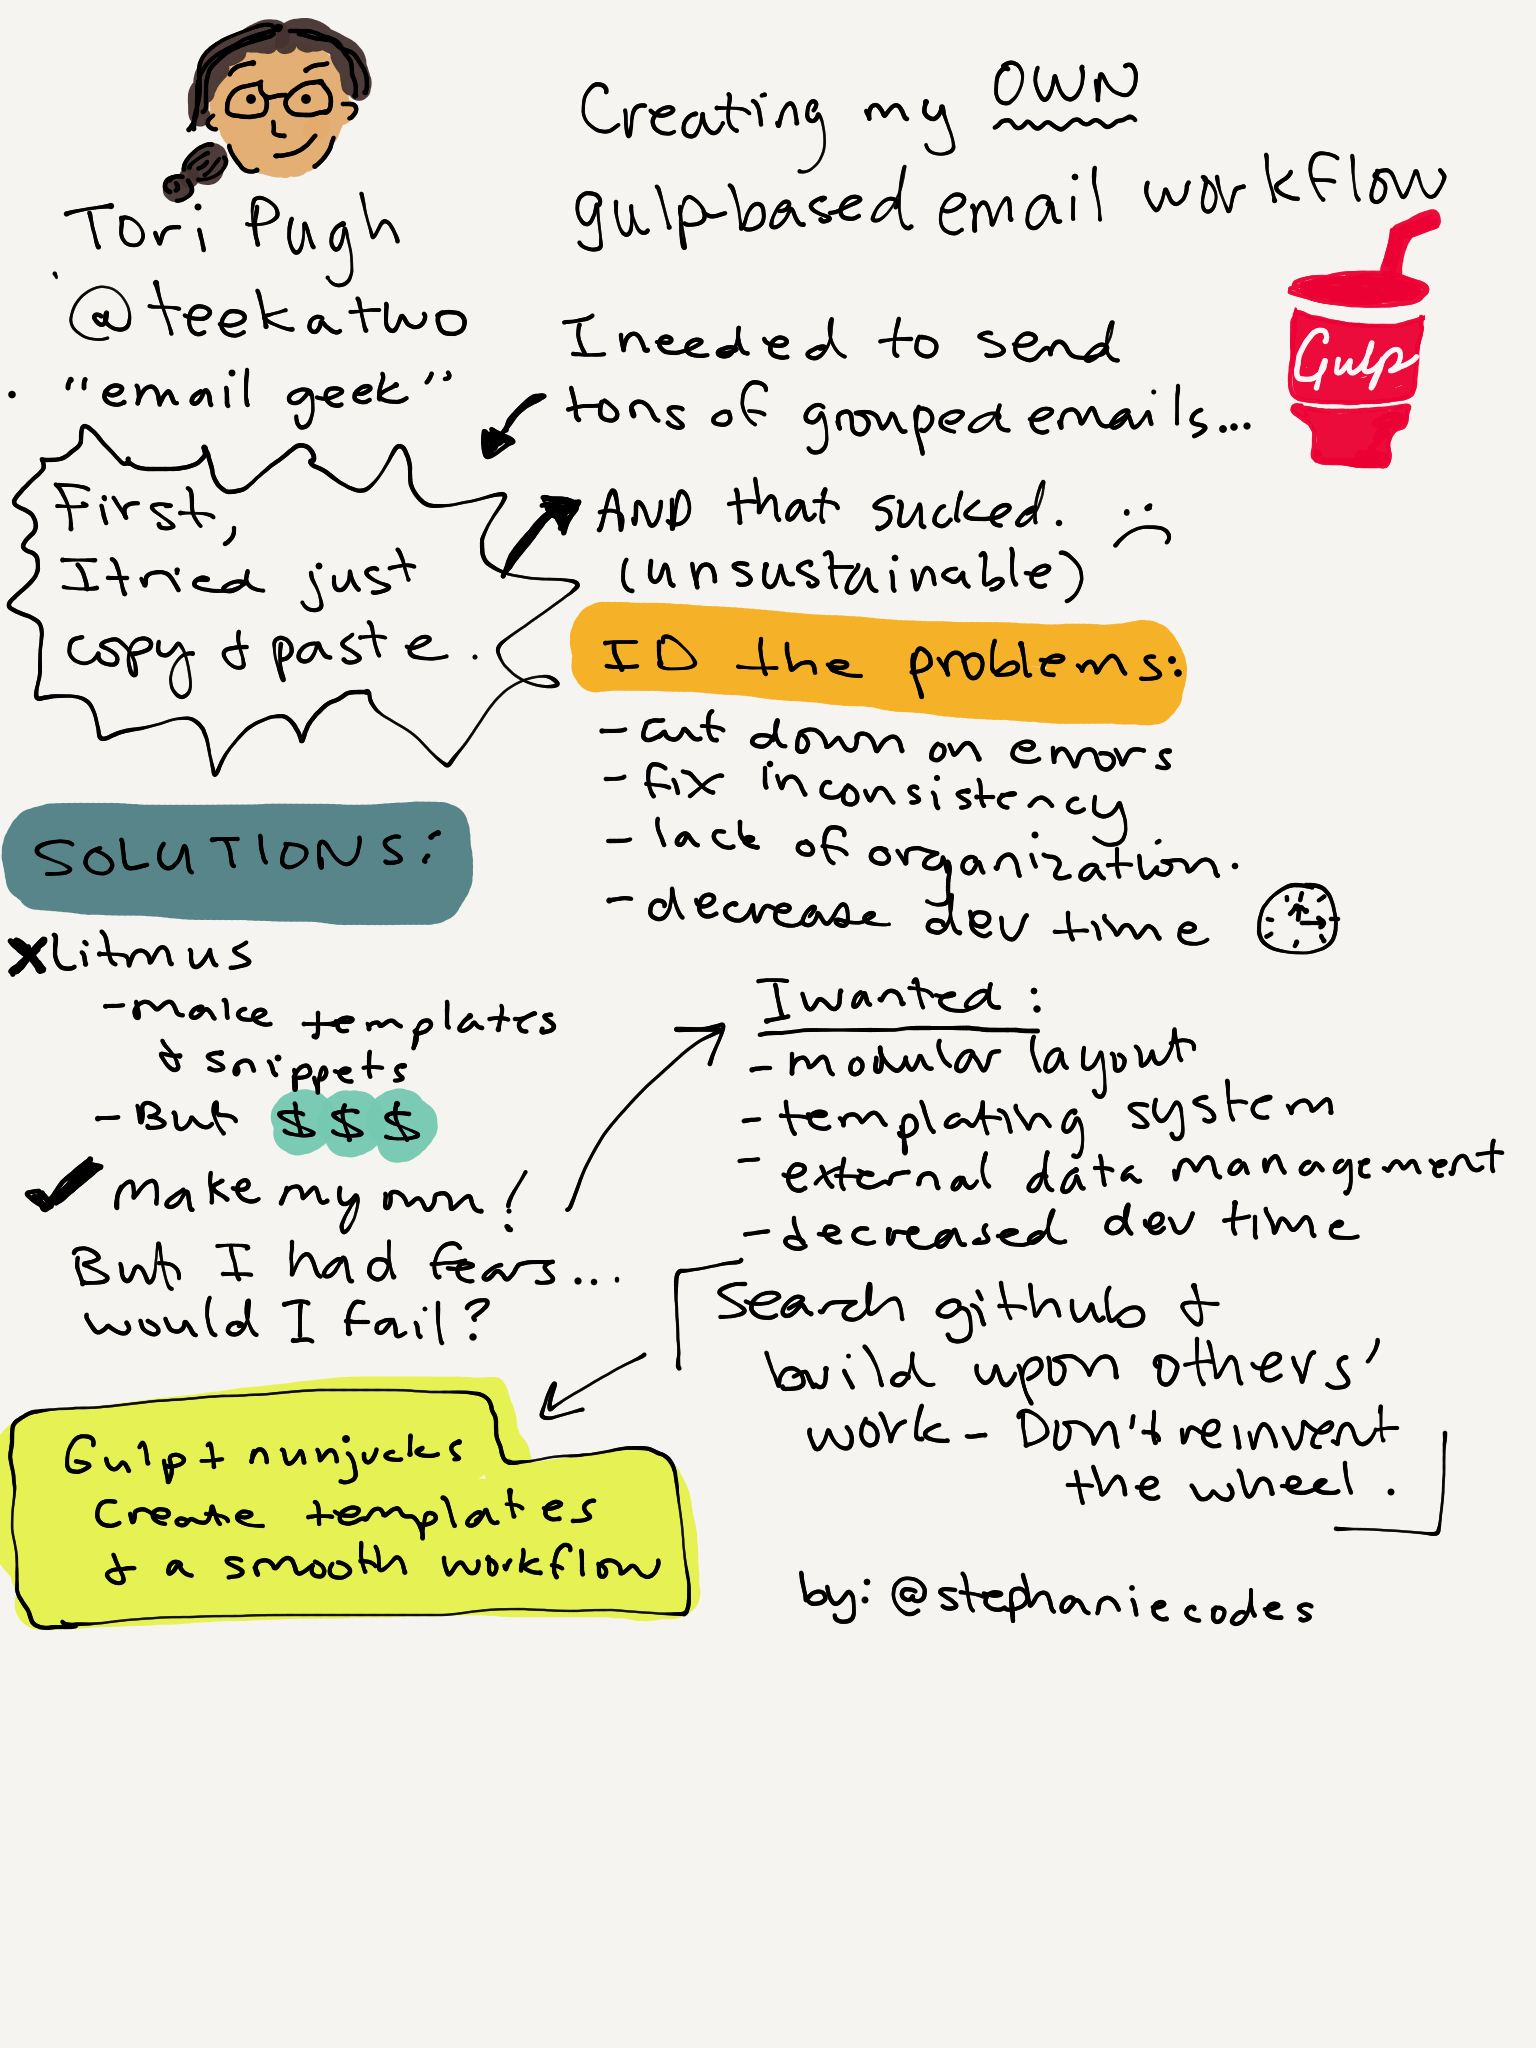 Tori Pugh
@teekatwo
"email geek"
Creating my OWN
gulp-based email workflow
Gulp
I needed to send
tons of grouped emails...
First,
I tried just
copy & paste.
AND that sucked. :(
(unsustainable)
ID the problems:
- cut down on errors
- fix inconsistency
- lack of organization.
- decrease dev time
SOLUTIONS:
x Litmus
- make templates
& snippets
- But $$$
✓ Make my own!
But I had fears...
would I fail?
I wanted:
- modular layout
- templating system
- external data management
- decreased dev time
Search github &
build upon others'
work - Don't reinvent
the wheel.
Gulp + nunjucks
Create templates
& a smooth workflow
by: @stephaniecodes